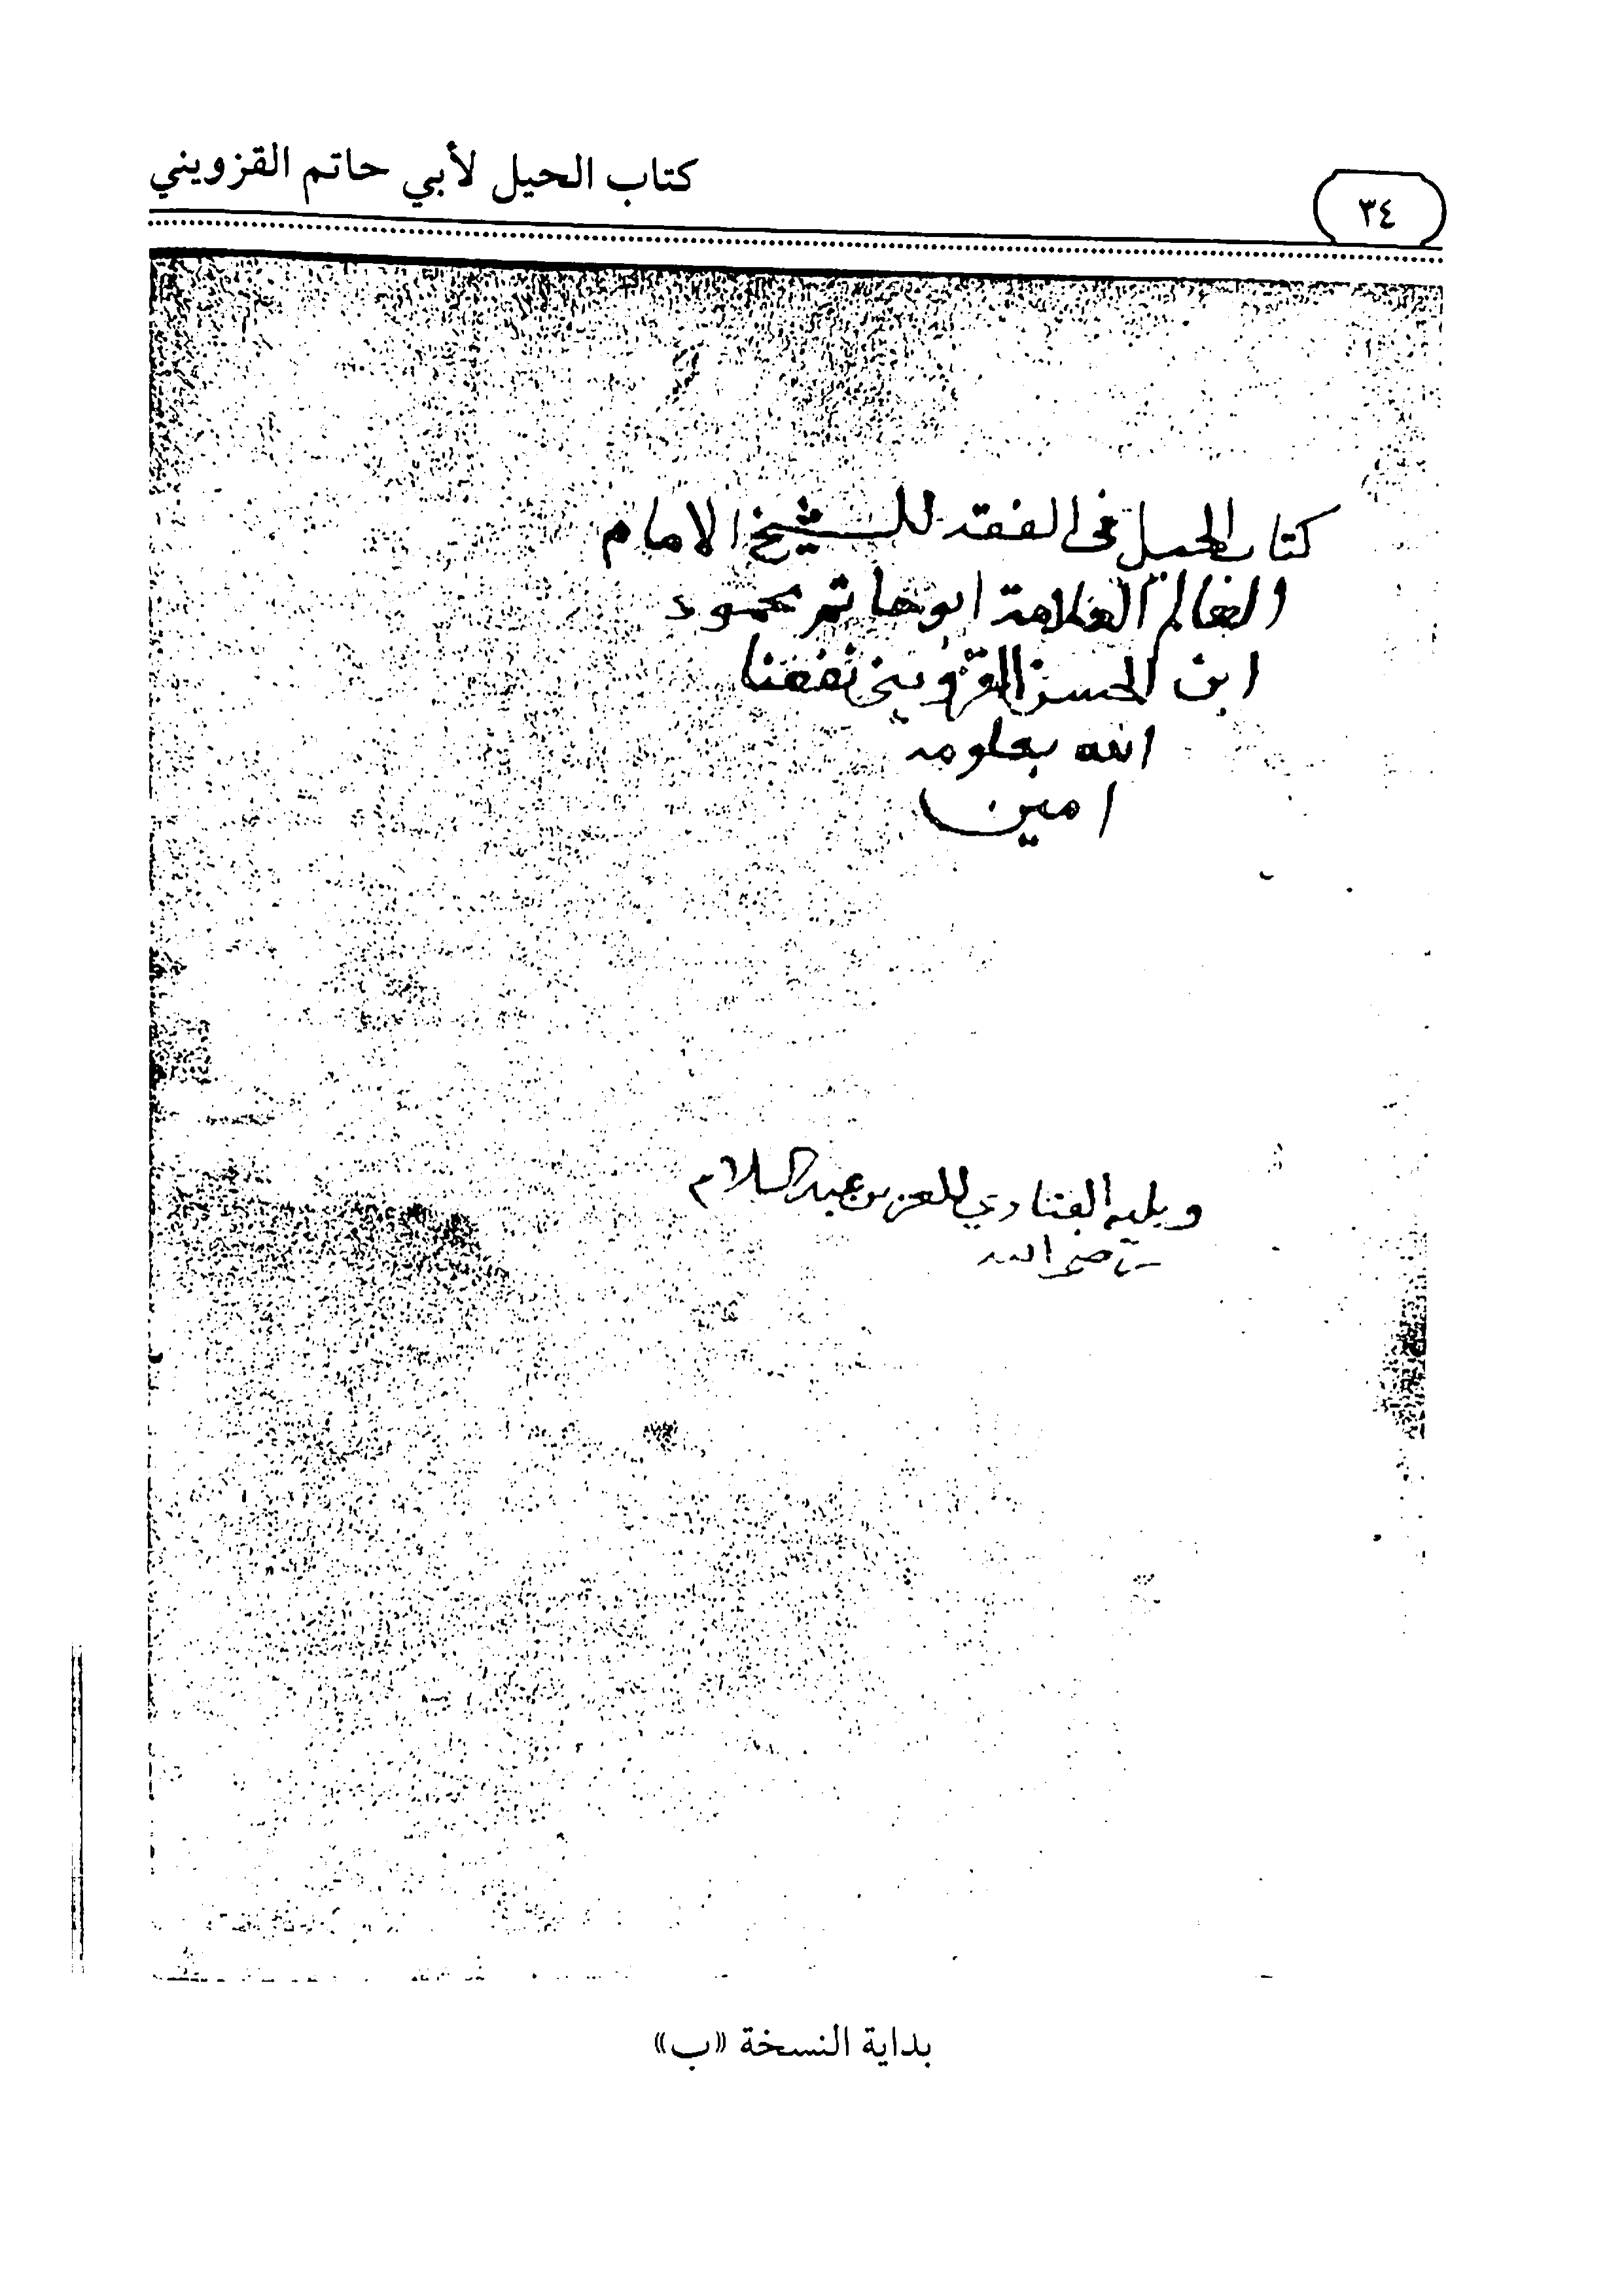 ٣٤
كتاب الحيل لأبي حاتم القزويني
كتاب الحيل في الفقه للشيخ الامام
العالم العلامة ابو حاتم محمود
ابن الحسن القزويني نفعنا
الله بعلومه
امين
ويليه الفتاوي للعز بن عبد السلام
رضي الله
بداية النسخة «ب»